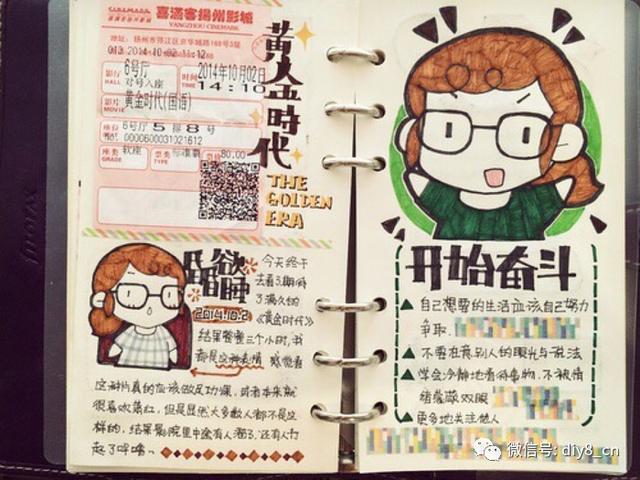 CINEMARK 喜满客扬州影城
YANGZHOU CINEMARK
地址: 扬州市邗江区京华城路168号3楼
013 2014-10-02 11:12
影厅 6号厅
HALL 对号入座
时间 2014年10月02日
TIME 14:10
影片 黄金时代(国语)
MOVIE
座位 6号厅 5排8号
0000600031021612
座类 软座
GRADE
票类
TYPE
票价 80.00
黄金时代
THE
GOLDEN
ERA
昏昏欲睡
2014.10.2
今天终于
去看了期待
了满久的
《黄金时代》
结果整整三个小时,我
都是这种表情
这种片真的应该做足功课,或者本来就
很喜欢萧红,但是显然大多数人都不是这
样的,结果影院里中途有人都了,还有人打
起了呼噜~
开始奋斗
▲自己想要的生活应该自己努力
争取.
▲不要在意别人的眼光与说法
▲学会冷静地看待事物,不被情
绪蒙蔽双眼
▲更多地关注他人
微信号: diy8_cn